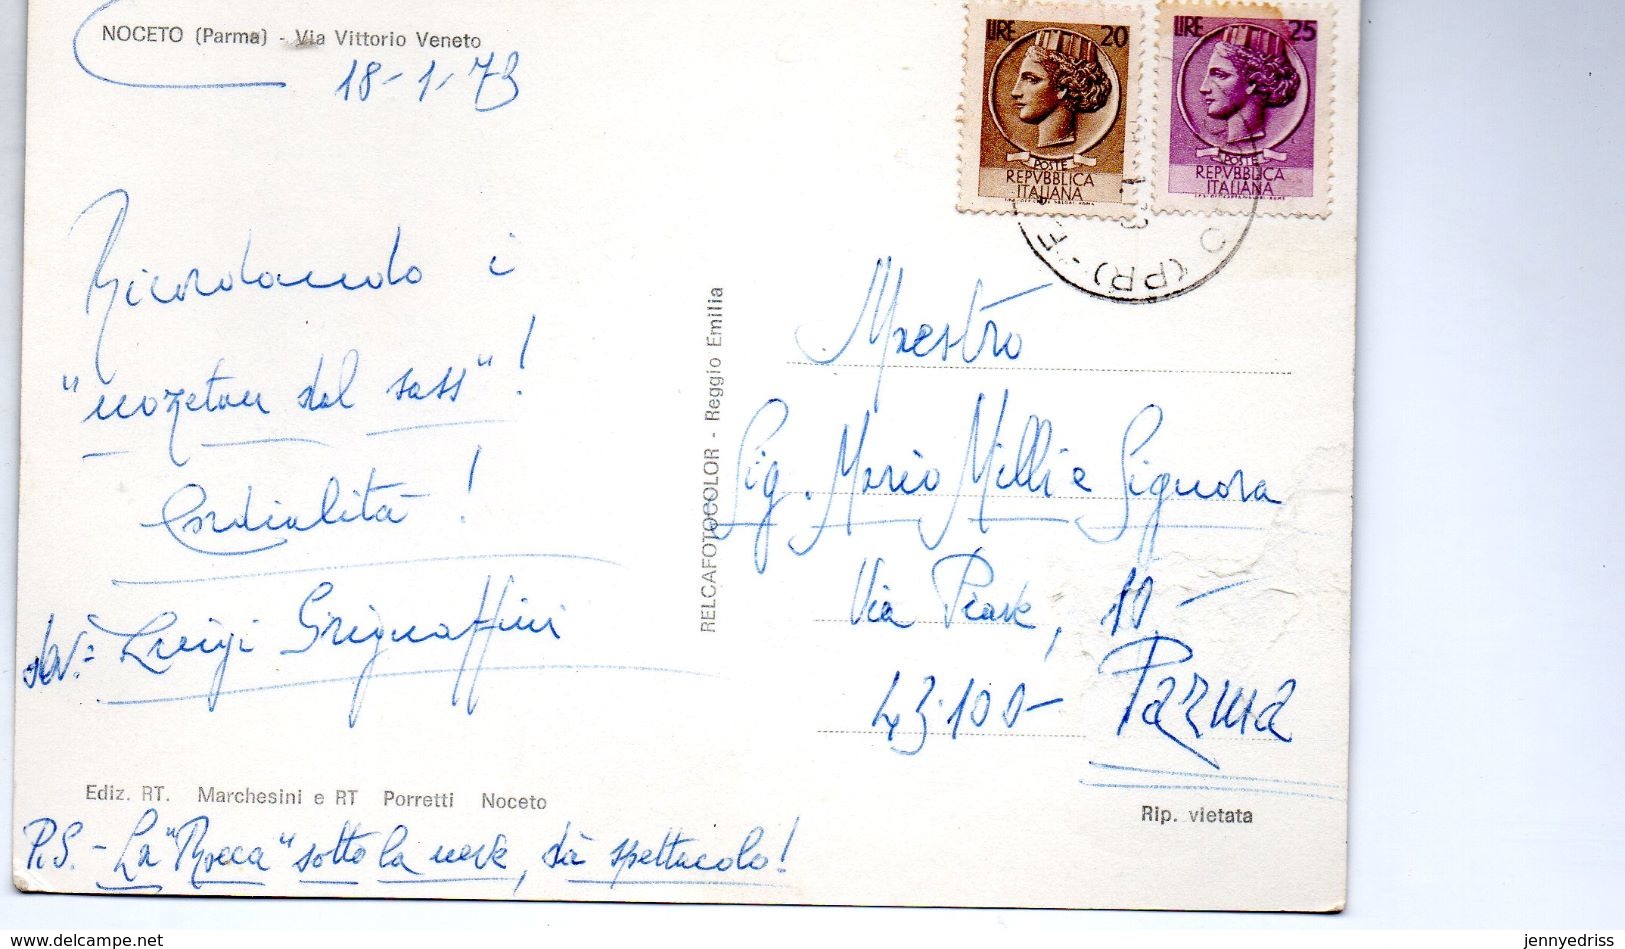 NOCETO (Parma) - Via Vittorio Veneto
18-1-73
LIRE 20
POSTE
REPVBBLICA
ITALIANA
LIRE 25
POSTE
REPVBBLICA
ITALIANA
(PR)
Ricordando i
"nozetan dal sass"!
Cordialità!
Luigi Grignaffini
RELCAFOTOCOLOR - Reggio Emilia
Maestro
Sig. Mario Milli e Signora
Via Piave, 10 -
43100 - Parma
Ediz. RT. Marchesini e RT Porretti Noceto
Rip. vietata
P.S. - La "Rocca" sotto la neve, dà spettacolo!
delcampe.net
jennyedriss